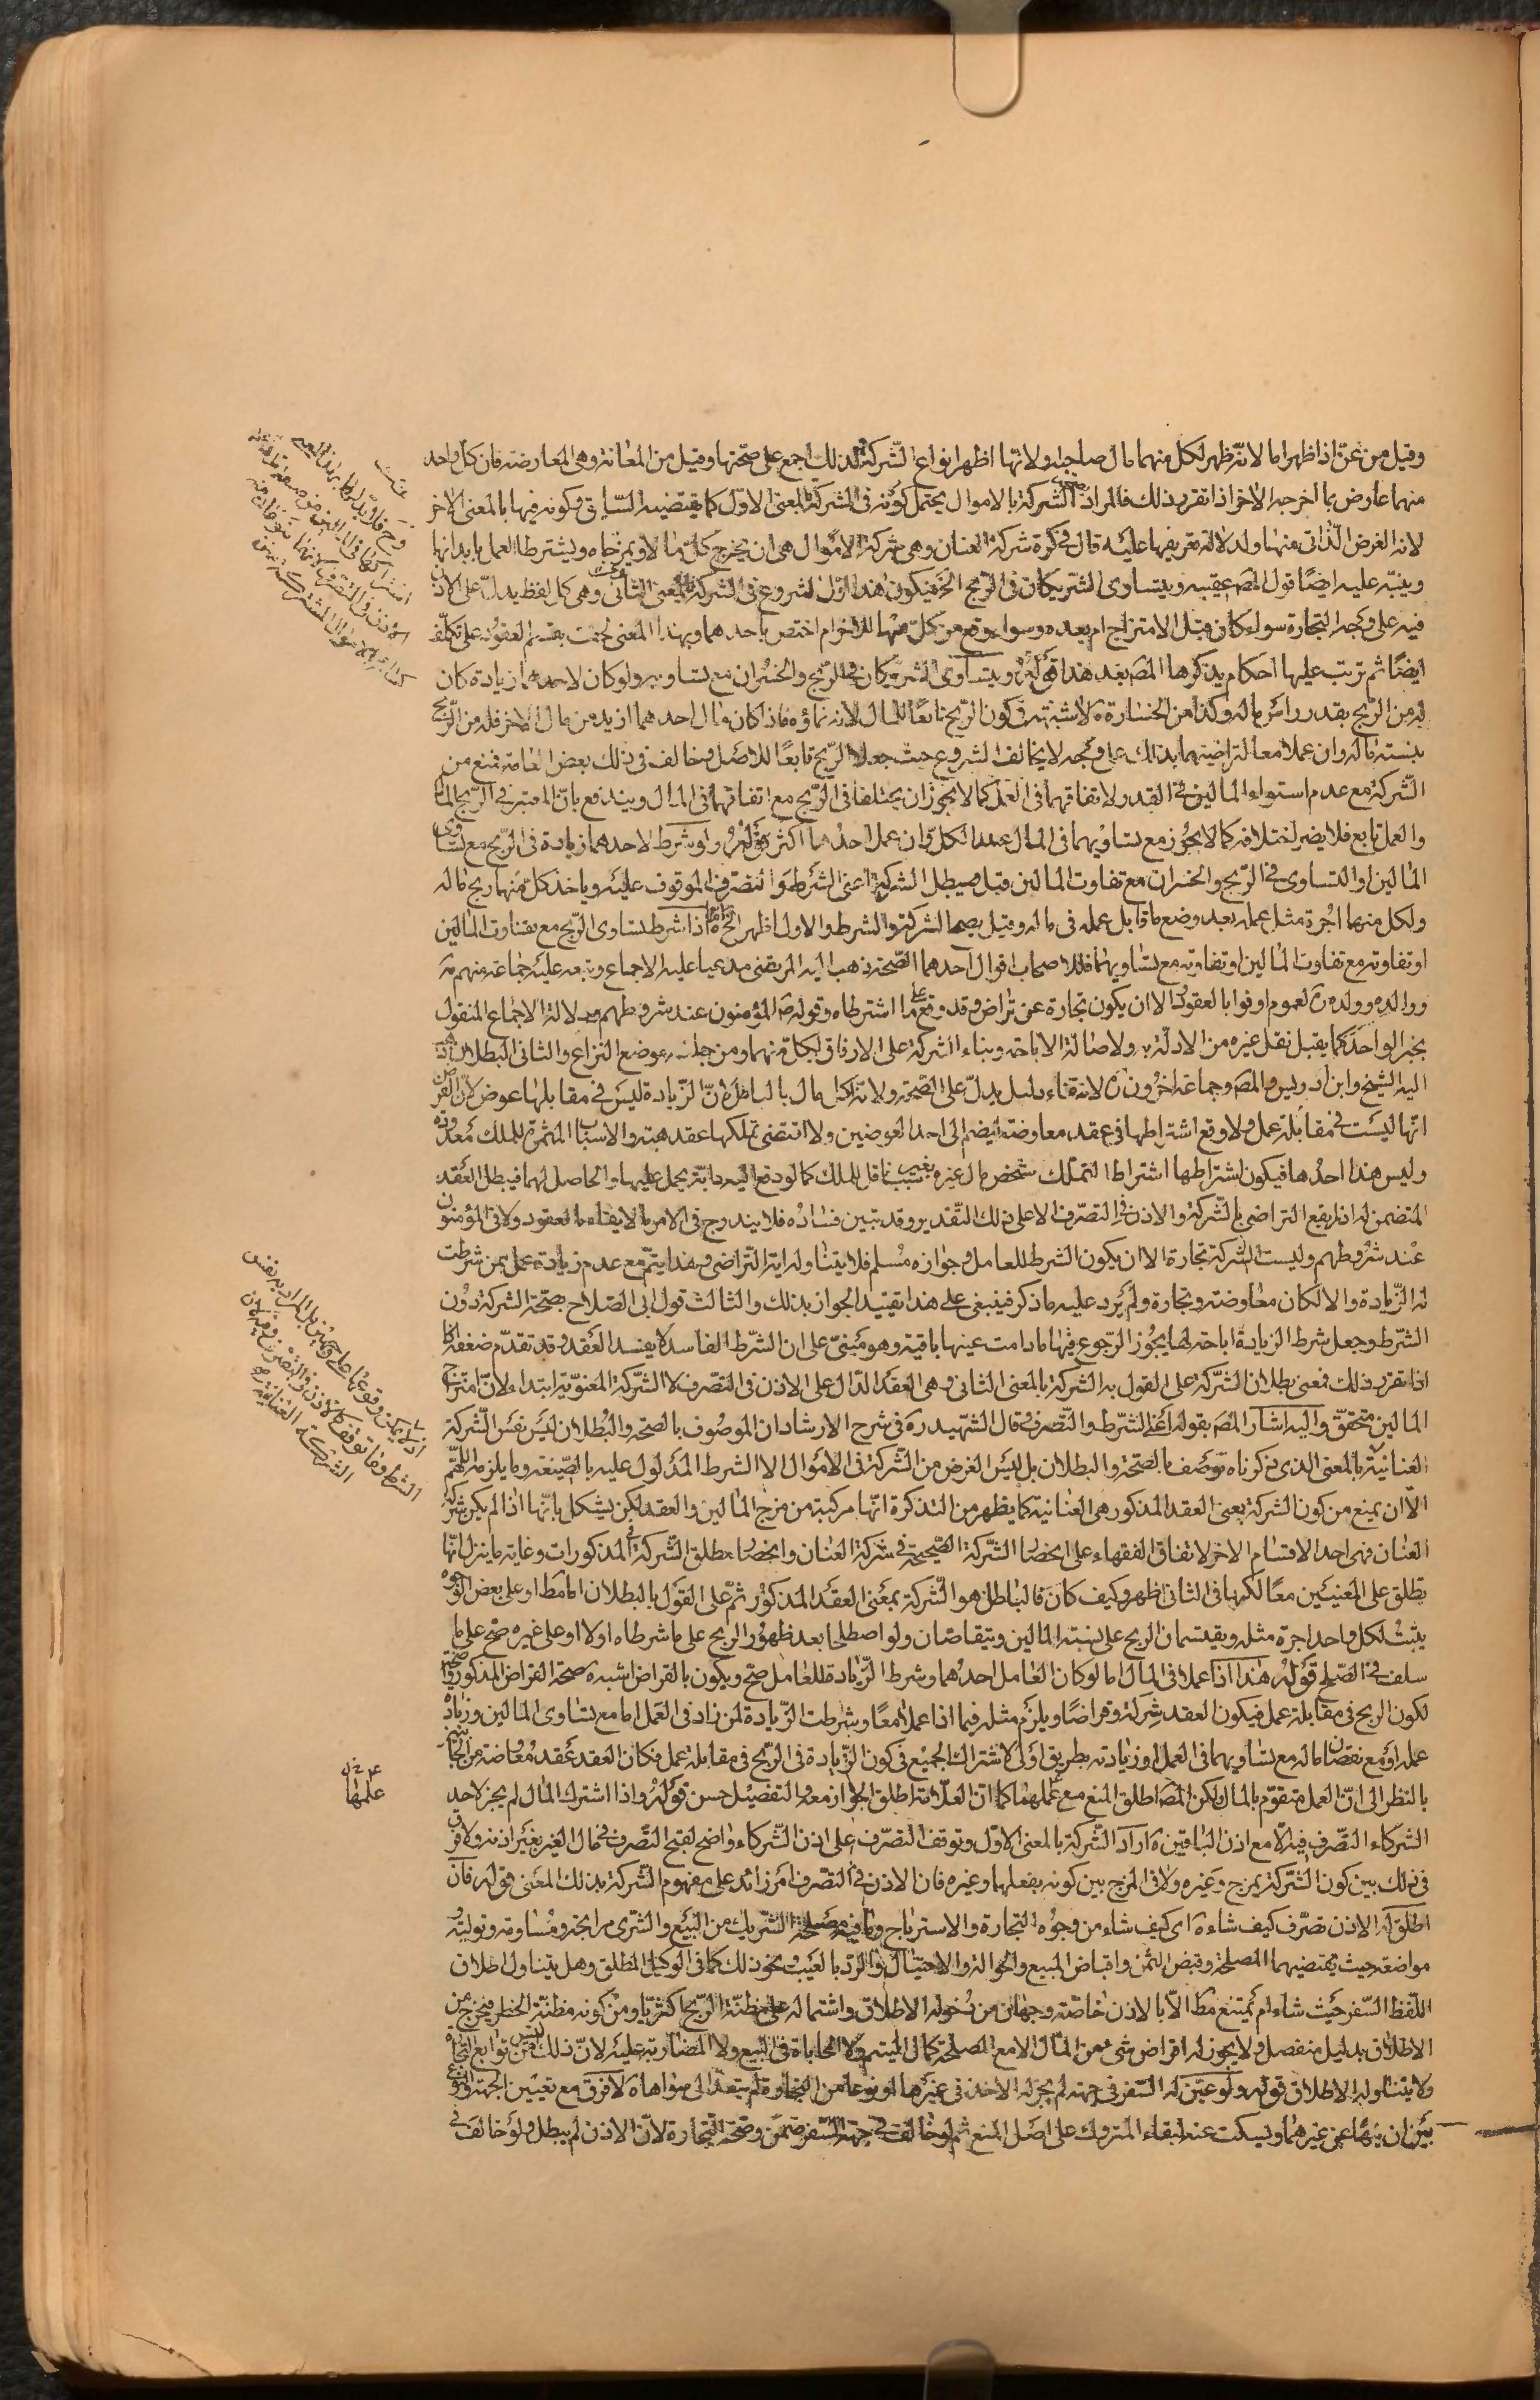 وقيل من عنّ اذا ظهر اما لانّه ظهر لكل منهما مال صاحبه ولانها اظهر انواع الشركة ولذلك اجمع على صحّتها وقيل من المعانة وهى المعارضة فان كل واحد
منهما عارض بما اخرجه الاخر اذا تقرر ذلك فالمراد بقوله الشركة بالاموال يحتمل كونه فى الشركة بالمعنى الاوّل كما يقتضيه السّياق وكونه فيها بالمعنى الاخر
لانه الغرض الذّاتى منها ولدلالة تعريفها عليه قال فى كرة شركة العنان وهى شركة الاموال هى ان يخرج كلّ مالا ويمزجاه ويشترطا العمل بابدانهما
وينبّه عليه ايضًا قول المصَ عقيبه ويتساوى الشريكان فى الربح الخ فيكون هذا اوّل الشروع فى الشركة بالمعنى الثانى وهى كل لفظ يدلّ على الاذن
فيه على وجه التجارة سواء كان قبل الامتزاج ام بعده وسواء وقع من كلّ منهما للاخر ام اختص باحدهما وبهذا المعنى لحقت بقسم العقود على تكلّف
ايضًا ثم ترتب عليها احكام يذكرها المصَ بعد هذا قَولُهُ ويتساوى الشريكان فى الربح والخسران مع تساويه ولو كان لاحدهما زيادة كان
له من الربح بقدر راس ماله وكذا من الخسارة ة لا شبهة فى كون الربح تابعًا للمال لانه نماؤه فاذا كان مال احدهما ازيد من مال الاخر فله من الربح
بنسبة ماله وان عملا معا لتراضيهما بذلك على وجه لا يخالف المشروع حيث جعلا الربح تابعًا للاصل وخالف فى ذلك بعض العامة فمنع من
الشركة مع عدم استواء المالين فى القدر ولاتفاقهما فى العمل كما لا يجوز ان يختلفا فى الربح مع اتفاقهما فى المال ويندفع بانّ المعتبر فى الربح المال
والعمل تابع فلا يضر اختلافه كما لا يجوز مع تساويهما فى المال عملا لكلّ وان عمل احدهما اكثر قَولُهُ ولو شرط لاحدهما زيادة فى الربح مع تساوى
المالين او التساوى فى الربح والخسران مع تفاوت المالين قيل يبطل الشركة اعنى الشرط والتصرف الموقوف عليه وياخذ كلّ منهما ربح ماله
ولكل منهما اجرة مثل عمله بعد وضع ما قابل عمله فى ماله وقيل يصحا الشركة والشرط والاول اظهر الخ ة اذا شرط تساوى الربح مع تفاوت المالين
او تفاوته مع تفاوت المالين او تفاوته مع تساويهما فللاصحاب اقوال احدهما الصّحة ذهب اليه المرتضى مدعيا عليه الاجماع وتبعه عليه جماعة منهم مة
ووالده وولده ن لعموم اوفوا بالعقود الا ان يكون تجارة عن تراض وقد وقع على ما اشترطاه وقوله صَ المؤمنون عند شروطهم ودلالة الاجماع المنقول
بخبر الواحد كما يقبل نقل غيره من الادلّة ولاصالة الاباحة وبناء الشركة على الارفاق لكلّ منهما ومن جملته موضع النزاع والثانى البطلان ذهب
اليه الشيخ وابن ادريس والمصَ وجماعة اخرون ن لانتفاء دليل يدلّ على الصّحة ولانه اكل مال بالباطل لانّ الزّيادة ليس فى مقابلها عوض لانّ الفرض
انها ليست فى مقابلة عمل ولا وقع اشتراطها فى عقد معاوضة ليضم الى احد العوضين ولا اقتضى تملكها عقد هبة والاسباب المثمرة للملك معدودة
وليس هذا احدها فيكون اشتراطها اشتراطا لتملّك شخص مال غيره بغير سبب ناقل للملك كما لو دفع اليه دابّة يحمل عليها والحاصل لهما فيبطل العقد
المتضمن له اذ لم يقع التراضى بالشركة والاذن فى التصرّف الا على ذلك التّقدير وقد تبين فساده فلا يندرج فى الامر بالايفاء بالعقود ولا فى المؤمنون
عند شروطهم وليست الشركة تجارة الا ان يكون الشرط للعامل وجوازه مسلم فلا يتناوله اية التّراضى وهذا يتمّ مع عدم زيادة عمل ممن شرطت
له الزّيادة والا لكان معاوضة وتجارة ولم يرد عليه ما ذكر فينبغى على هذا تقييد الجواز بذلك والثالث قول ابى الصّلاح بصحّة الشركة دون
الشّرط وجعل شرط الزيادة اباحة لها يجوز الرّجوع فيها ما دامت عينها باقية وهو مبنىّ على ان الشّرط الفاسد لا يفسد العقد وقد تقدّم ضعفه
اذا تقرر ذلك فمعنى بطلان الشّركة على القول به الشركة بالمعنى الثانى وهى العقد الدّال على الاذن فى التصرّف لا الشّركة المعنويّة ابتداء لانّ امتزاج
المالين متحقّق واليه اشار المصَ بقوله اعنى الشّرط والتّصرف وقال الشّهيد ره فى شرح الارشاد ان الموصوف بالصحة والبطلان ليس نفس الشّركة
العنانية بالمعنى الذى ذكرناه توصف بالصّحّة والبطلان بل ليس الغرض من الشركة فى الاموال الا الشرط المدلول عليه بالصّيغة وما يلزمه اللهّم
الّا ان يمنع من كون الشركة بمعنى العقد المذكور هى العنانية كما يظهر من التذكرة انّها مركبة من مزج المالين والعقد لكن يشكل بانّها اذا لم يكن شركة
العنان فهى احد الاقسام الاخر لاتفاق الفقهاء على انحصار الشّركة الصّحيحة فى شركة العنان وانحصار مطلق الشّركة فى المذكورات وغاية ما ينزل انّها
تطلق على المعنيين معًا لكنها فى الثانى اظهر وكيف كان فالباطل هو الشّركة بمعنى العقد المذكور ثمّ على القول بالبطلان اما مط او على بعض الوجوه
يثبت لكل واحد اجرة مثله ويقتسمان الربح على نسبة المالين ويتقاصّان ولو اصطلحا بعد ظهور الربح على ما شرطاه اولا او على غيره صحّ على ما
سلف فى الصّلح قَولُهُ هذا اذا عملا فى المال اما لو كان العامل احدهما وشرط الزّيادة للعامل صحّ ويكون بالقراض اشبه ة صحة القراض المذكور
لكون الربح فى مقابلة عمل فيكون العقد شركة وقراضًا ويلزم مثله فيما اذا عملا معًا وشرطت الزّيادة لمن زاد فى العمل اما مع تساوى المالين وزيادة
عمله او مع نقصان ماله مع تساويهما فى العمل او زيادته بطريق اولى لاشتراك الجميع فى كون الزّيادة فى الربح فى مقابلة عمل فكان العقد عقد معاوضة من الجانبين
بالنظر الى انّ العمل متقوّم بالمال ولكن المصَ اطلق المنع مع عملهما كما انّ العلّامة اطلق الجواز معه والتفصيل حسن قَولُهُ واذا اشترك المال لم يجز لاحد
الشركاء التصّرف فيه الّا مع اذن الباقين ة اراد الشّركة بالمعنى الاوّل وتوقف التصّرف على اذن الشّركاء واضح لقبح التصّرف فى مال الغير بغير اذنه ولا فرق
فى ذلك بين كون الشّركة بمزج وغيره ولا فى المزج بين كونه بفعلهما وغيره فان الاذن فى التصّرف امر زائد على مفهوم الشّركة بذلك المعنى قوله فان
اطلق له الاذن تصّرف كيف شاء ة اى كيف شاء من وجوه التجارة والاسترباح وما فيه مصلحة الشّريك من البيع والشّرى مرابحة ومساومة وتولية
مواضعة حيث يقتضيهما المصلحة وقبض الثمن واقباض المبيع والحوالة والاحتيال والرّد بالعيب ونحو ذلك كما فى الوكيل المطلق وهل يتناول اطلاق
اللّفظ السّفر حيث شاء ام يمتنع مط الّا بالاذن خاصّة وجهان من دخوله الاطلاق واشتماله على مظنّة الربح اكثريّا ومن كونه مظنّة الخطر فيخرج من
الاطلاق بدليل منفصل ولا يجوز له اقراض شىء من المال الا مع المصلحة كمال اليتيم ولا المحاباة فى البيع ولا المضاربة عليه لانّ ذلك ليس من توابع التجارة
ولا يتناوله الاطلاق قوله ولو عيّن له السّفر فى جهة لم يجز له الاخذ فى غيرها او نوعا من التجارة لم يتعدّ الى سواها ة لا فرق مع تعيين الجهة والنّوع
بين ان ينهاه عن غيرهما ويسكت عنه لبقاء المتروك على اصل المنع ثم لو خالف فى جهة السّفر ضمن وصحّة التجارة لانّ الاذن لم يبطل ولو خالف فى
عليها